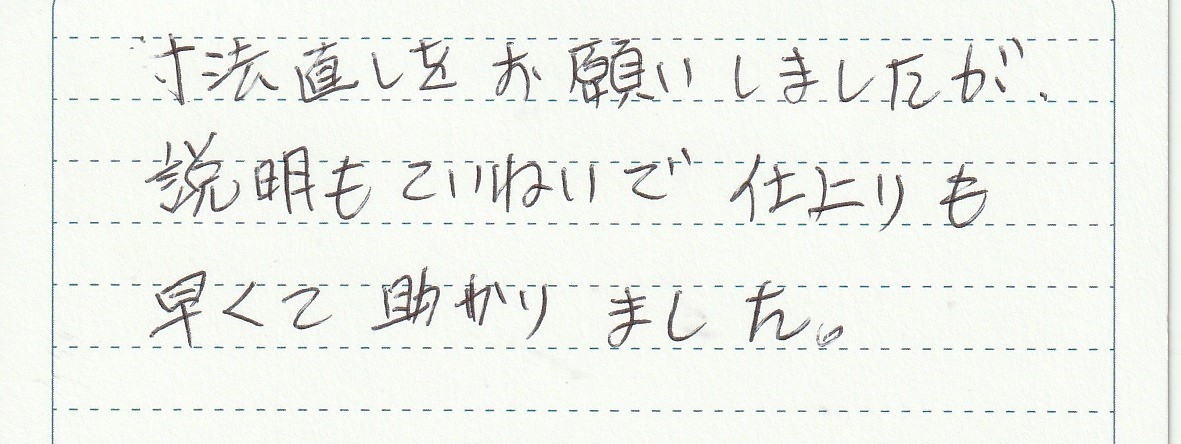 寸法直しをお願いしましたが、
説明もていねいで仕上りも
早くて助かりました。